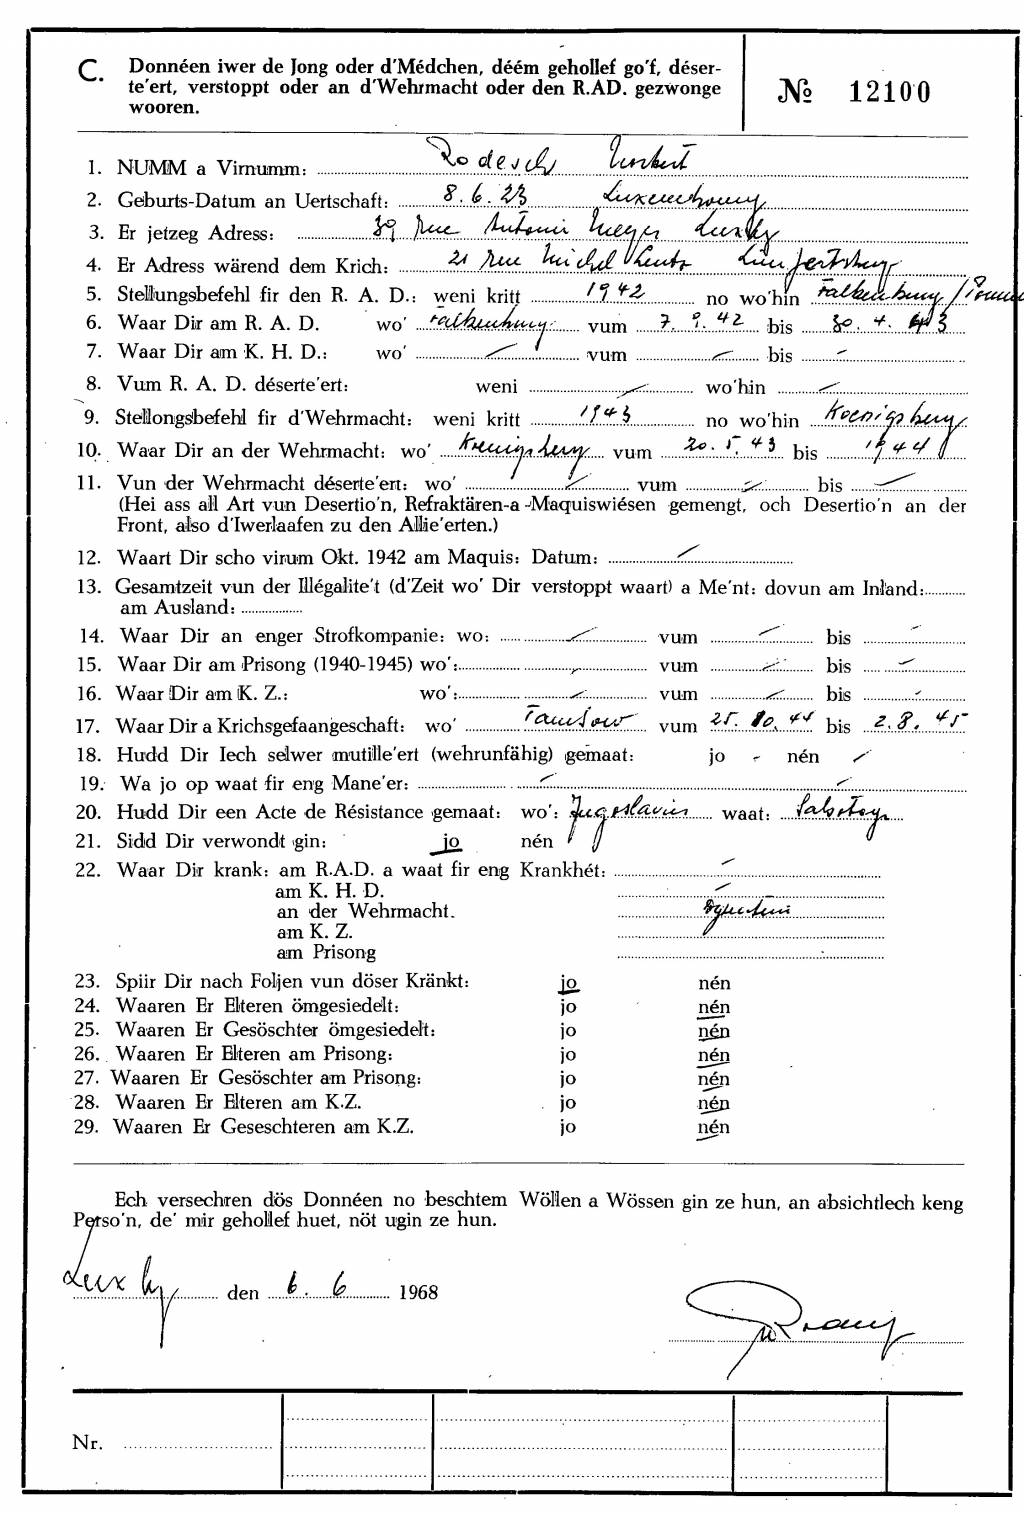 C. Donnéen iwer de Jong oder d'Médchen, déém gehollef go'f, déser-
te'ert, verstoppt oder an d'Wehrmacht oder den R.AD. gezwonge
wooren.
№ 12100
1. NUMM a Virnumm: Rodesch Norbert
2. Geburts-Datum an Uertschaft: 8.6.23 Luxembourg
3. Er jetzeg Adress: 39 rue Antoine Meyer Luxbg
4. Er Adress wärend dem Krich: 21 rue Michel Lentz
5. Stellungsbefehl fir den R. A. D.: weni kritt 1942 no wo'hin Falkenburg /
6. Waar Dir am R. A. D. wo' Falkenburg vum 7. 9. 42 bis 30. 4. 43
7. Waar Dir am K. H. D.: wo' — vum — bis —
8. Vum R. A. D. déserte'ert: weni — wo'hin —
9. Stellongsbefehl fir d'Wehrmacht: weni kritt 1943 no wo'hin Koenigsberg
10. Waar Dir an der Wehrmacht: wo' Koenigsberg vum 20. 5. 43 bis 1944
11. Vun der Wehrmacht déserte'ert: wo' — vum — bis —
(Hei ass all Art vun Desertio'n, Refraktären-a -Maquiswiésen gemengt, och Desertio'n an der
Front, also d'Iwerlaafen zu den Allie'erten.)
12. Waart Dir scho virum Okt. 1942 am Maquis: Datum: —
13. Gesamtzeit vun der Illégalite't (d'Zeit wo' Dir verstoppt waart) a Me'nt: dovun am Inland:
am Ausland:
14. Waar Dir an enger Strofkompanie: wo: — vum — bis —
15. Waar Dir am Prisong (1940-1945) wo': — vum — bis —
16. Waar Dir am K. Z.: wo': — vum — bis —
17. Waar Dir a Krichsgefaangeschaft: wo' Tambow vum 25. 10. 44 bis 2. 8. 45
18. Hudd Dir Iech selwer mutille'ert (wehrunfähig) gemaat: jo - nén —
19. Wa jo op waat fir eng Mane'er: — —
20. Hudd Dir een Acte de Résistance gemaat: wo': Jugoslavien waat: Sabotage
21. Sidd Dir verwondt gin: jo nén
22. Waar Dir krank: am R.A.D. a waat fir eng Krankhét: —
am K. H. D. —
an der Wehrmacht.
am K. Z.
am Prisong
23. Spiir Dir nach Foljen vun döser Kränkt: jo nén
24. Waaren Er Elteren ömgesiedelt: jo nén
25. Waaren Er Gesöschter ömgesiedelt: jo nén
26. Waaren Er Elteren am Prisong: jo nén
27. Waaren Er Gesöschter am Prisong: jo nén
28. Waaren Er Elteren am K.Z. jo nén
29. Waaren Er Geseschteren am K.Z. jo nén
Ech versechren dös Donnéen no beschtem Wöllen a Wössen gin ze hun, an absichtlech keng
Perso'n, de' mir gehollef huet, nöt ugin ze hun.
Luxbg den 6. 6 1968
Nr.